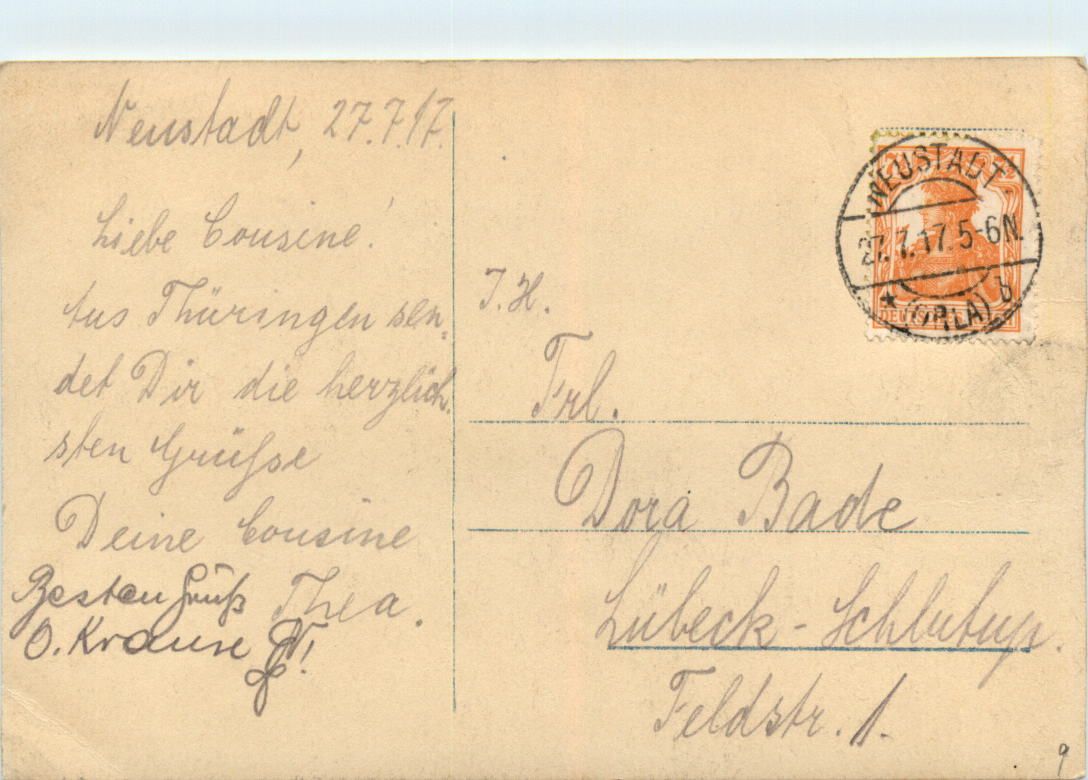 Neustadt, 27.7.17.
Liebe Cousine!
Aus Thüringen sen-
det Dir die herzlich-
sten Grüße
Deine Cousine
Thea.
Besten Gruß
O. Krause
NEUSTADT
27.7.17.5-6N.
* (ORLA) b
7½
DEUTSCHES REICH
J. H.
Frl.
Dora Bade
Lübeck-Schlutup.
Feldstr. 1.
9